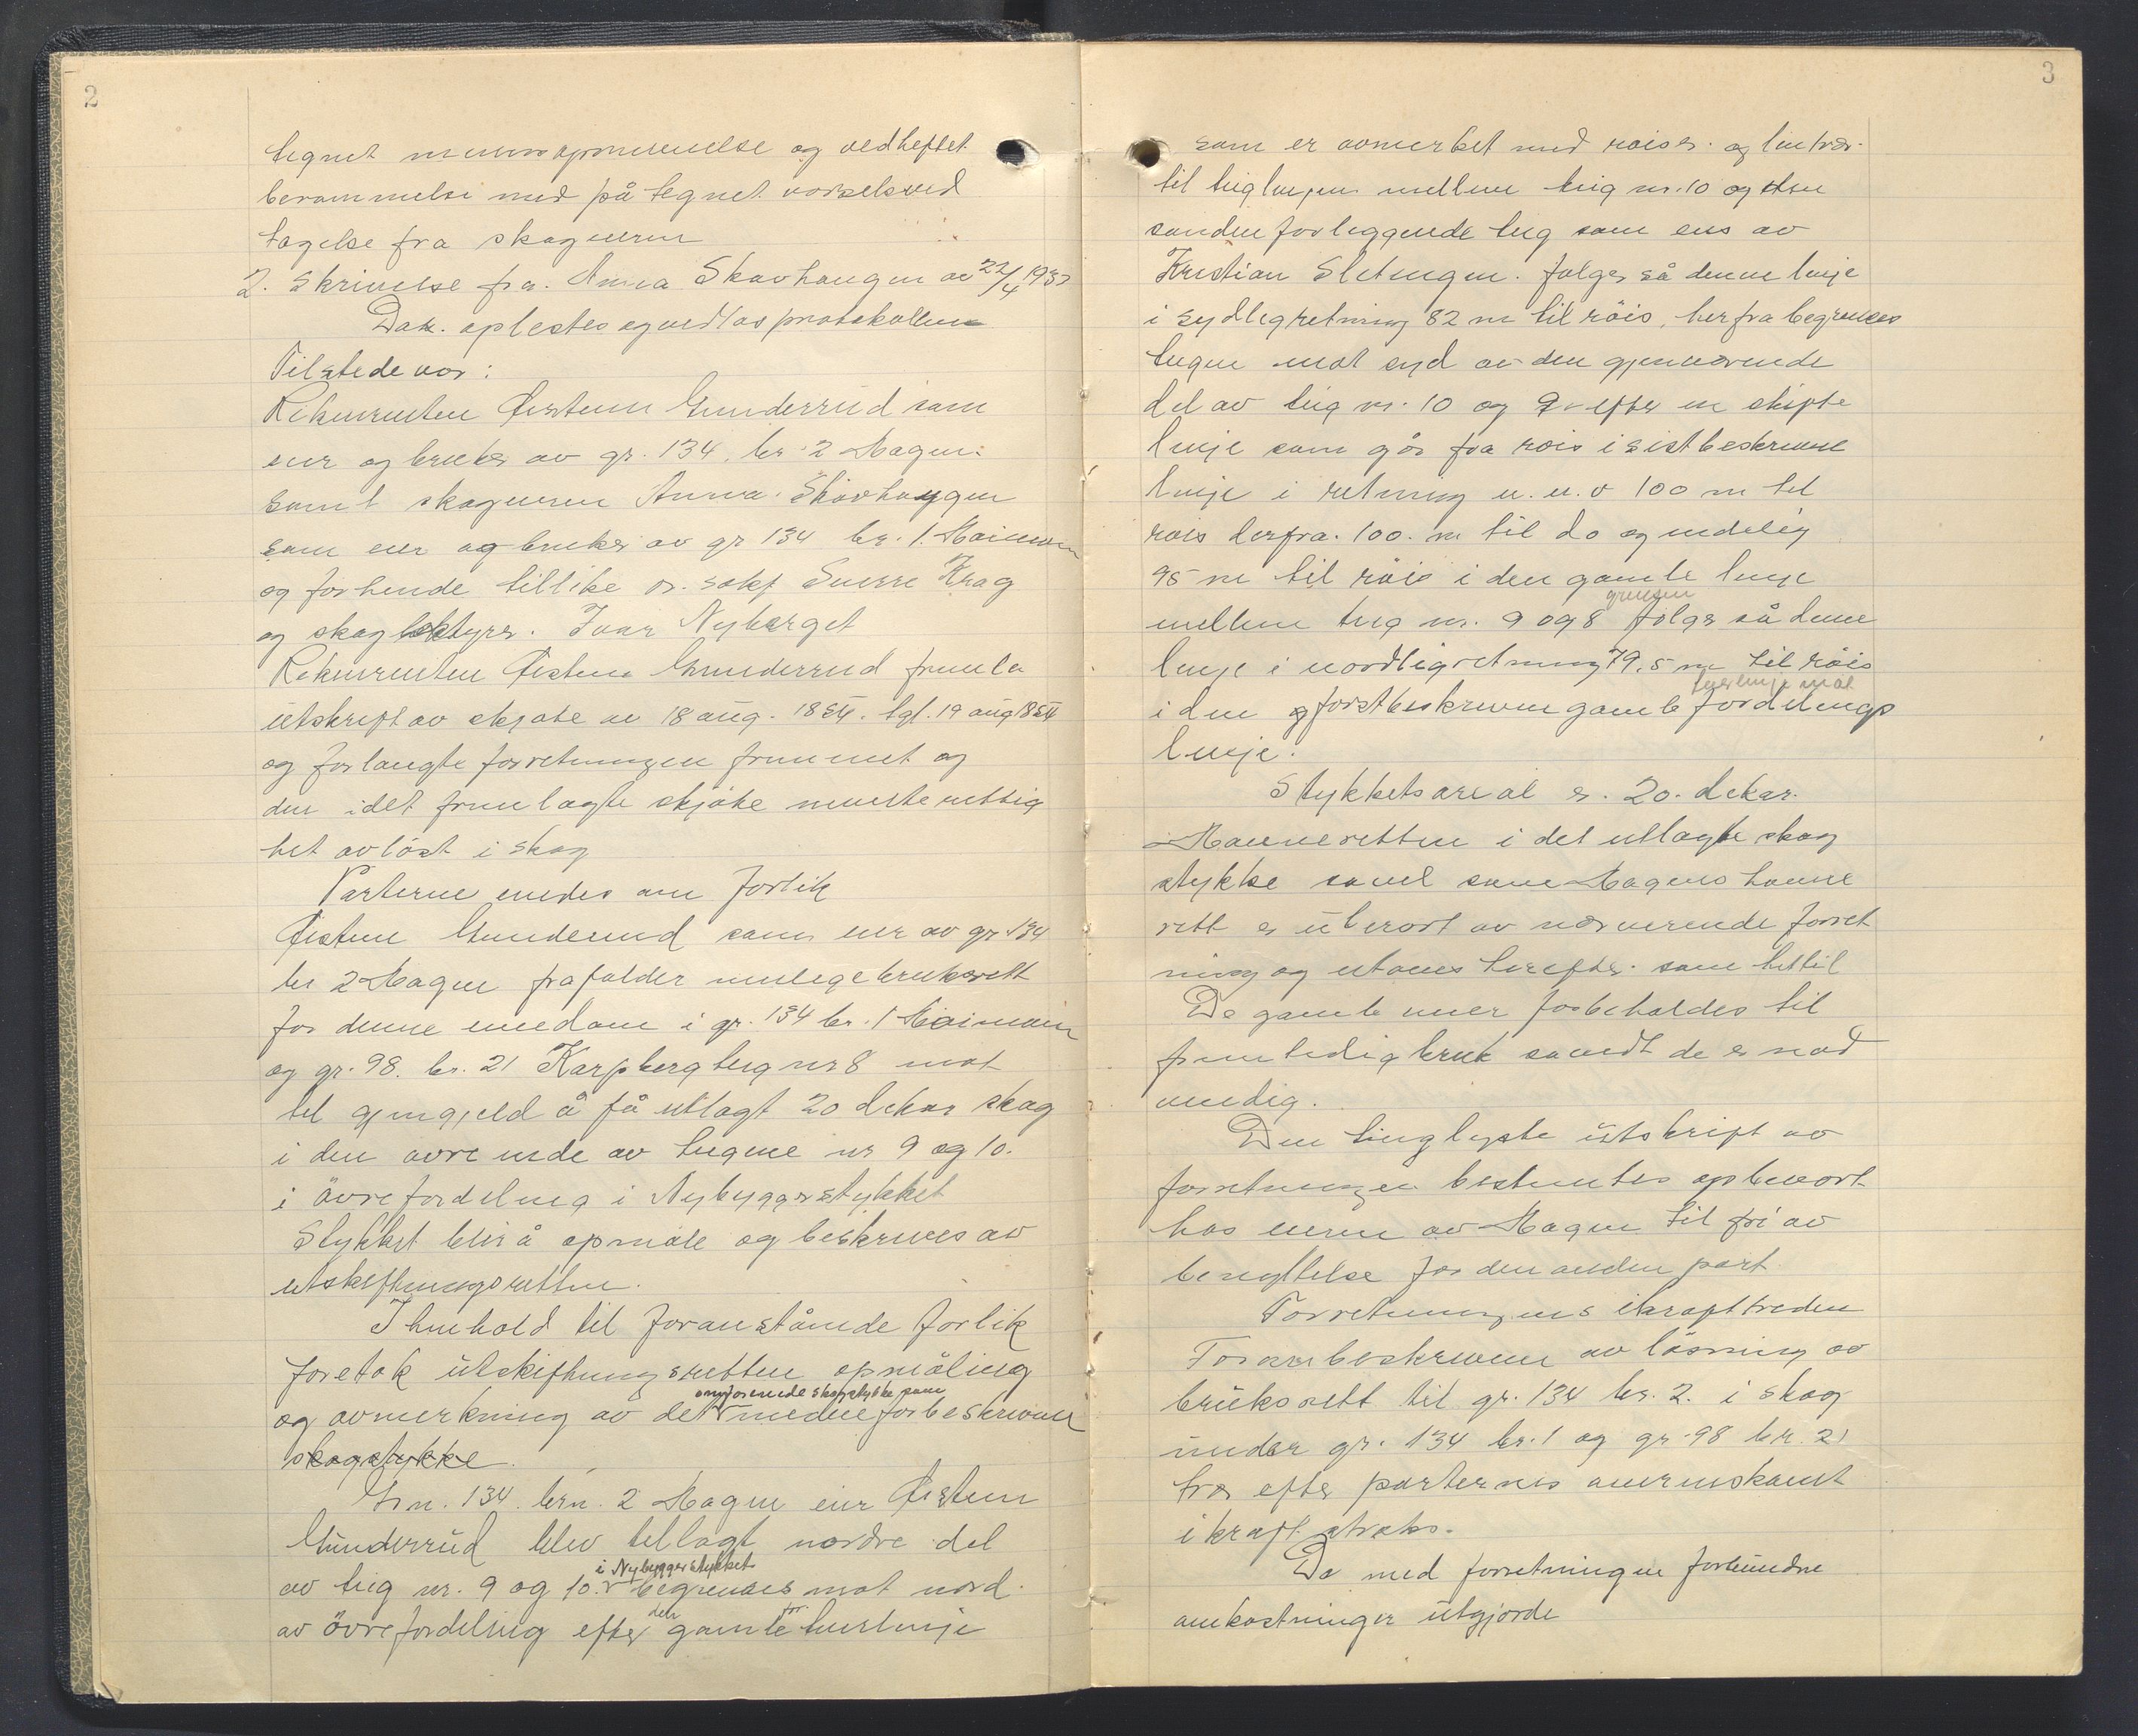 2
tegnet mennsopnevnelse og vedheftet
berammelse med på tegnet varselsved
tagelse fra skageieren
2. Skrivelse fra. Anna Skavhaugen av 22/4 193
Dok. oplestes og vedlas protokollen
Tilstede var:
Rekvirenten Øistein Gunderrud som
eier og bruker av gr. 134, br. 2 Hagen:
samt skageieren Anna. Skavhaugen
som eier og bruker av gr 134 br. 1.
og for hende tillike or. sakf Sverre Krag
og skogbektyrer. Ivar Nyberget
Rekvirenten Øistein Gunderrud fremla
utskrift av skjøte av 18 aug. 1854. tgl. 19 aug 1854
og forlangte forretningen fremmet og
den i det fremlagte skjøte nevnte rettig
het avløst i skog
Parterne enedes om forlik
Øistein Gunderrud som eier av gr 134
br 2 Hagen frafalder mulige bruksrett
for denne eiendom i gr. 134 br. 1
og gr. 98. br. 21 Karpberg teig nr 8 mot
til gjengjeld å få utlagt 20 dekar skog
i den øvre ende av teigene nr 9 og 10.
i övre fordeling i Nybyggerstykket
Stykket blir å opmåle og beskrives av
utskiftningsretten.
I henhold til foranstående forlik
foretok utskiftningsretten opmåling
og avmerkning av det omforenede skogstykke som nedenfor beskriven
skogstykke.
Grn. 134. brn. 2 Hagen eier Øistein
Gunderrud blev tillagt nordre del
av teig nr. 9 og 10. i Nybyggerstykket begrenses mot nord.
av övre fordeling efter den gamle linje
3
som er avmerket med röiser. og
til teiglinjen mellem teig nr. 10 og den
sønden for leggende teig som eies av
Kristian Sletengen. følger så denne linje
i sydlig retning 82 m til röis, herfra begrenses
teigen mot syd av den gjenværende
del av teig nr. 10 og 9 efter en skifte
linje som går fra röis i sist beskrevne
linje i retning n. n. v 100 m til
röis derfra. 100. m til do og endelig
95 m til röis i den gamle linje
grensen
mellem teig nr. 9 og 8 følger så denne
linje i nordlig retning 79,5 m til röis
i den og forst beskreven gamle fordelings
linje.
Stykkets areal er. 20. dekar.
Havneretten i det utlagte skog
stykke savel som Hagens havne
rett er uberort av nærværende forret
ning og utøves herefter. som hittil
De gamle veier forbeholdes til
fremtidig bruk savidt de er nød
vendig.
Den tinglyste utskrift av
forretningen bestemtes opbevart
hos eieren av Hagen til fri av
benyttelse for den anden part.
Forretningens ikrafttreden
Foranbeskreven avløsning av
bruksrett til gr. 134 br. 2. i skog
under gr. 134 br. 1 og gr. 98 br. 21
trær efter parternes overenskomst
i kraft straks.
De med forretningen forbundne
omkostninger utgjorde